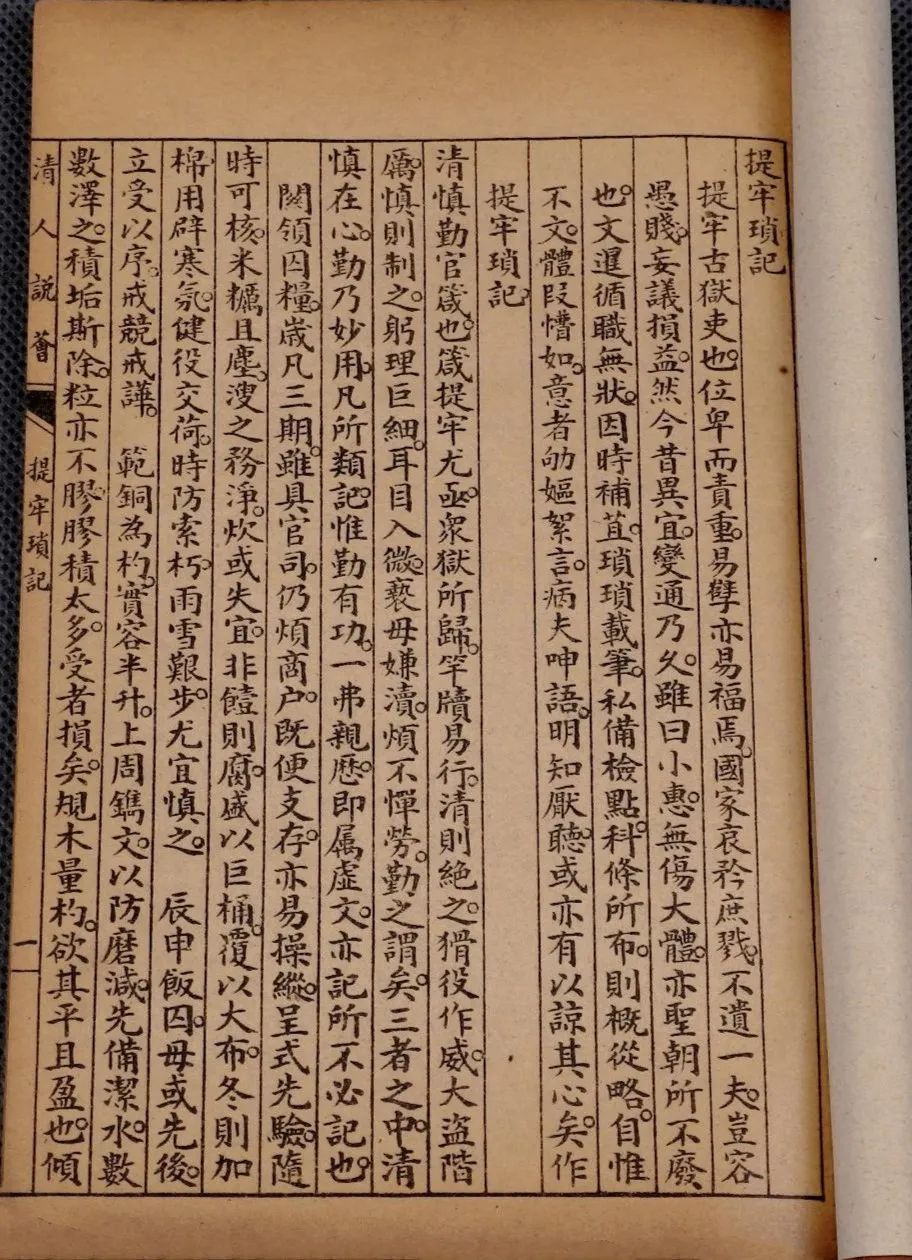 提牢瑣記
提牢古獄吏也。位卑而責重。易孽亦易福焉。國家哀矜庶戮。不遺一夫。豈容
愚賤。妄議損益。然今昔異宜。變通乃久。雖曰小惠。無傷大體。亦聖朝所不廢
也。文遝循職無狀。因時補苴。瑣瑣載筆。私備檢點。科條所布。則概從略。自惟
不文。體段懵如。意者劬嫗絮言。病夫呻語。明知厭聽。或亦有以諒其心矣。作
提牢瑣記。
清慎勤官箴也。箴提牢尤亟。衆獄所歸。竿牘易行。清則絶之。猾役作威。大盜階
厲。慎則制之。躬理巨細。耳目入微。褻毋嫌瀆。煩不憚勞。勤之謂矣。三者之中。清
慎在心。勤乃妙用。凡所類記。惟勤有功。一弗親歷。即屬虛文。亦記所不必記也。
關領囚糧。歲凡三期。雖具官司。仍煩商户。既便支存。亦易操縱。呈式先驗。隨
時可核。米糲且塵。溲之務淨。炊或失宜。非饐則腐。盛以巨桶。覆以大布。冬則加
棉。用辟寒氛。健役交荷。時防索朽。雨雪艱步。尤宜慎之。　辰申飯囚。毋或先後。
立受以序。戒競戒譁。　範銅為杓。實容半升。上周鐫文。以防磨減。先備潔水。數
數澤之。積垢斯除。粒亦不膠。膠積太多。受者損矣。規木量杓。欲其平且盈也。傾
清人說薈　提牢瑣記　一